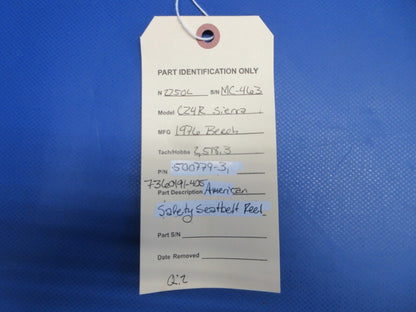 PART IDENTIFICATION ONLY
N 2250L S/N MC-463
Model C24R Sierra
MFG 1976 Beech
Tach/Hobbs 2,518.3
P/N 500779-3,
7360191-405
Part Description American
Safety Seatbelt Reel
Part S/N
Date Removed
Q:2